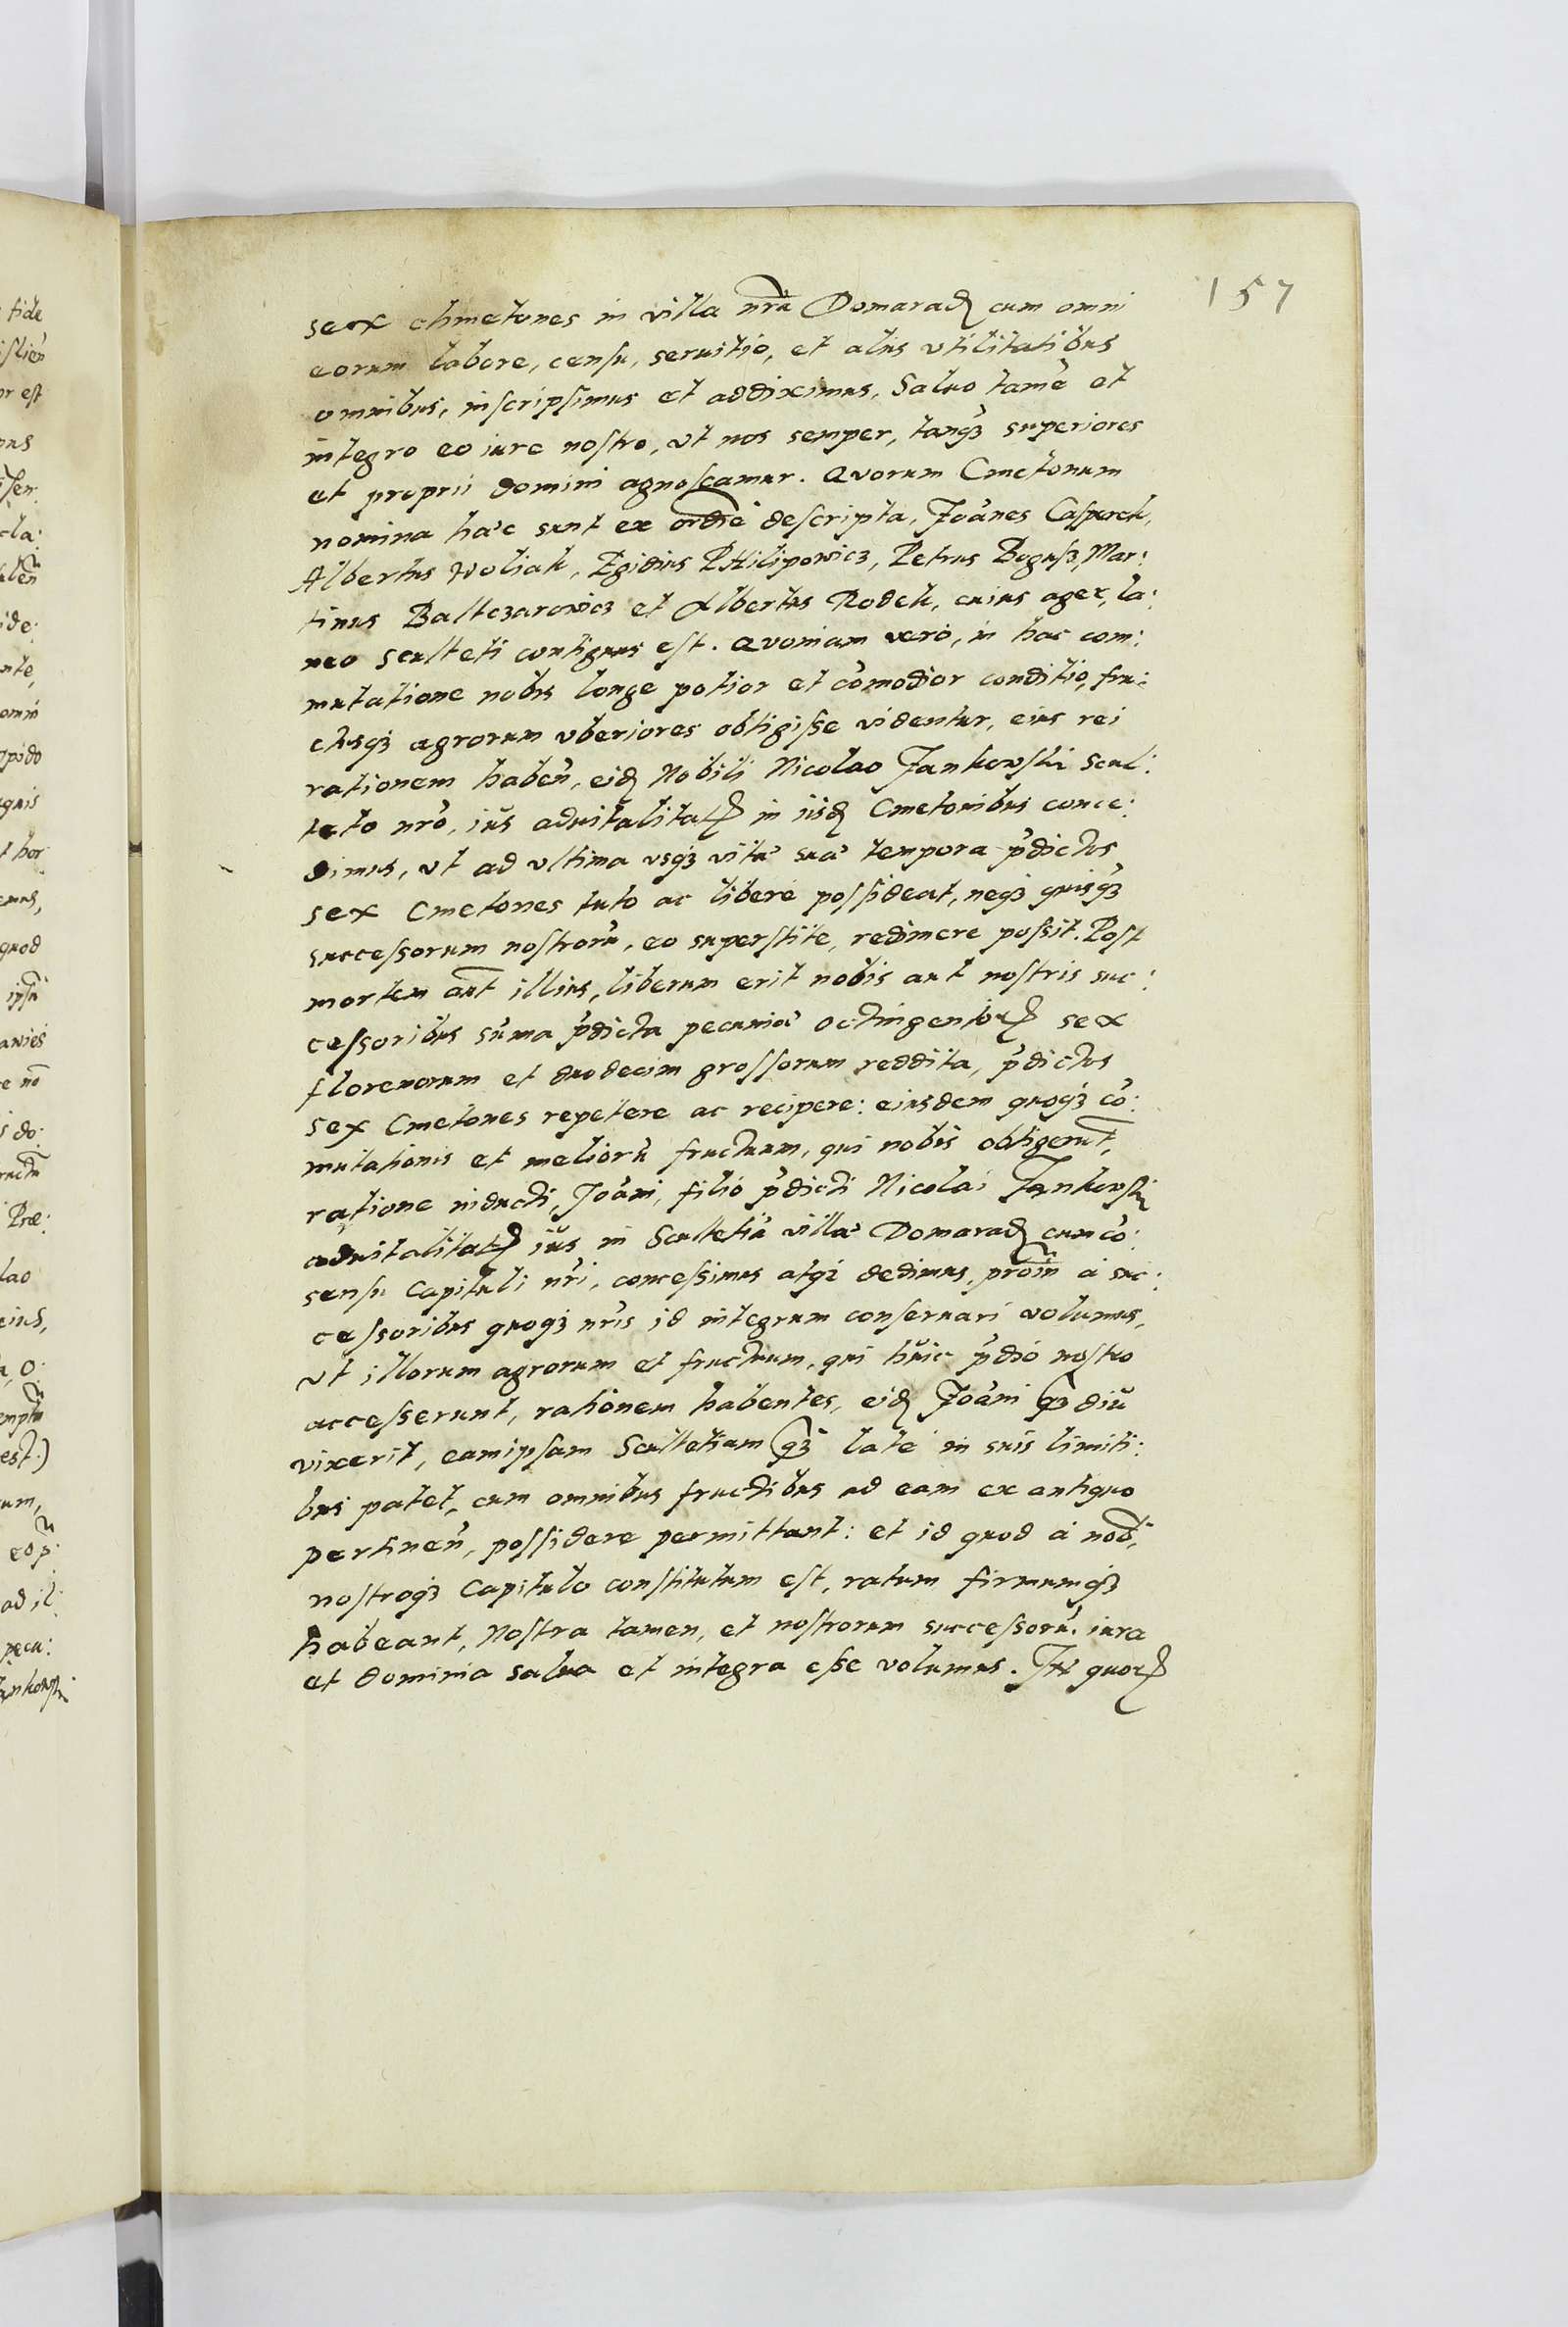 157
sex chmetones in villa nrã Domarad cum omni
eorum labore, censu, seruitio, et aliis vtilitatibus
omnibus, inscripsimus et addiximus, Saluo tamẽ et
integro eo iure nostro, vt nos semper, tanqꝫ superiores
et proprii domini agnoscamur. Quorum Cmetonum
nomina hæc sunt ex ordiẽ descripta, Joãnes Casperek,
Albertus Woliak, Egidius PHilipowicz, Petrus Bogusz, Mar:
tinus Baltczarowicz et Albertus Rodek, cuius ager, la:
neo sculteti contiguus est. Quoniam verò, in hac com:
mutatione nobis longe potior et cõmodior conditio, fru:
ctusqꝫ agrorum vberiores obtigisse videntur, eius rei
rationem habeñ, eid Nobili Nicolao Jankowski Scul:
teto nrõ, ius aduitalitatꝭ in iisd Cmetonibus conce:
dimus, vt ad vltima vsqꝫ vitæ suæ tempora p̃dictos
sex Cmetones tuto ac libere possideat, neqꝫ quisqꝫ
successorum nostrorũ, eo superstite, redimere possit. Post
mortem aut̃ illius, liberum erit nobis aut nostris suc:
cessoribus sũma p̃dicta pecuniæ octingentorꝭ sex
florenorum et duodecim grossorum reddita, p̃dictos
sex Cmetones repetere ac recipere: eiusdem quoqꝫ cõ:
mutationis et meliorũ fructuum, qui nobis obtigerut̃,
ratione inducti, Joãni, filio p̃dicti Nicolai Jankowski
aduitalitatꝭ ius in Scultetiã villæ Domarad cum cõ:
sensu Capituli nr̃i, concessimus atqꝫ dedimus, proiñ à suc:
cessoribus quoqꝫ nr̃is id integrum conseruari volumus,
vt illorum agrorum et fructuum, qui huic p̃dio nostro
accesserunt, rationem habentes, eid Joãni qꝫ diu
vixerit, eamipsam Scultetiam qꝫ late in suis limiti:
bus patet, cum omnibus fructibus ad eam ex antiquo
pertineñ, possidere permittant: et id quod à nob̃,
nostroqꝫ Capitulo constitutum est, ratum firmumqꝫ
habeant, Nostra tamen, et nostrorum successorũ iura
et dominia salua et integra esse volumus. In quorꝭ